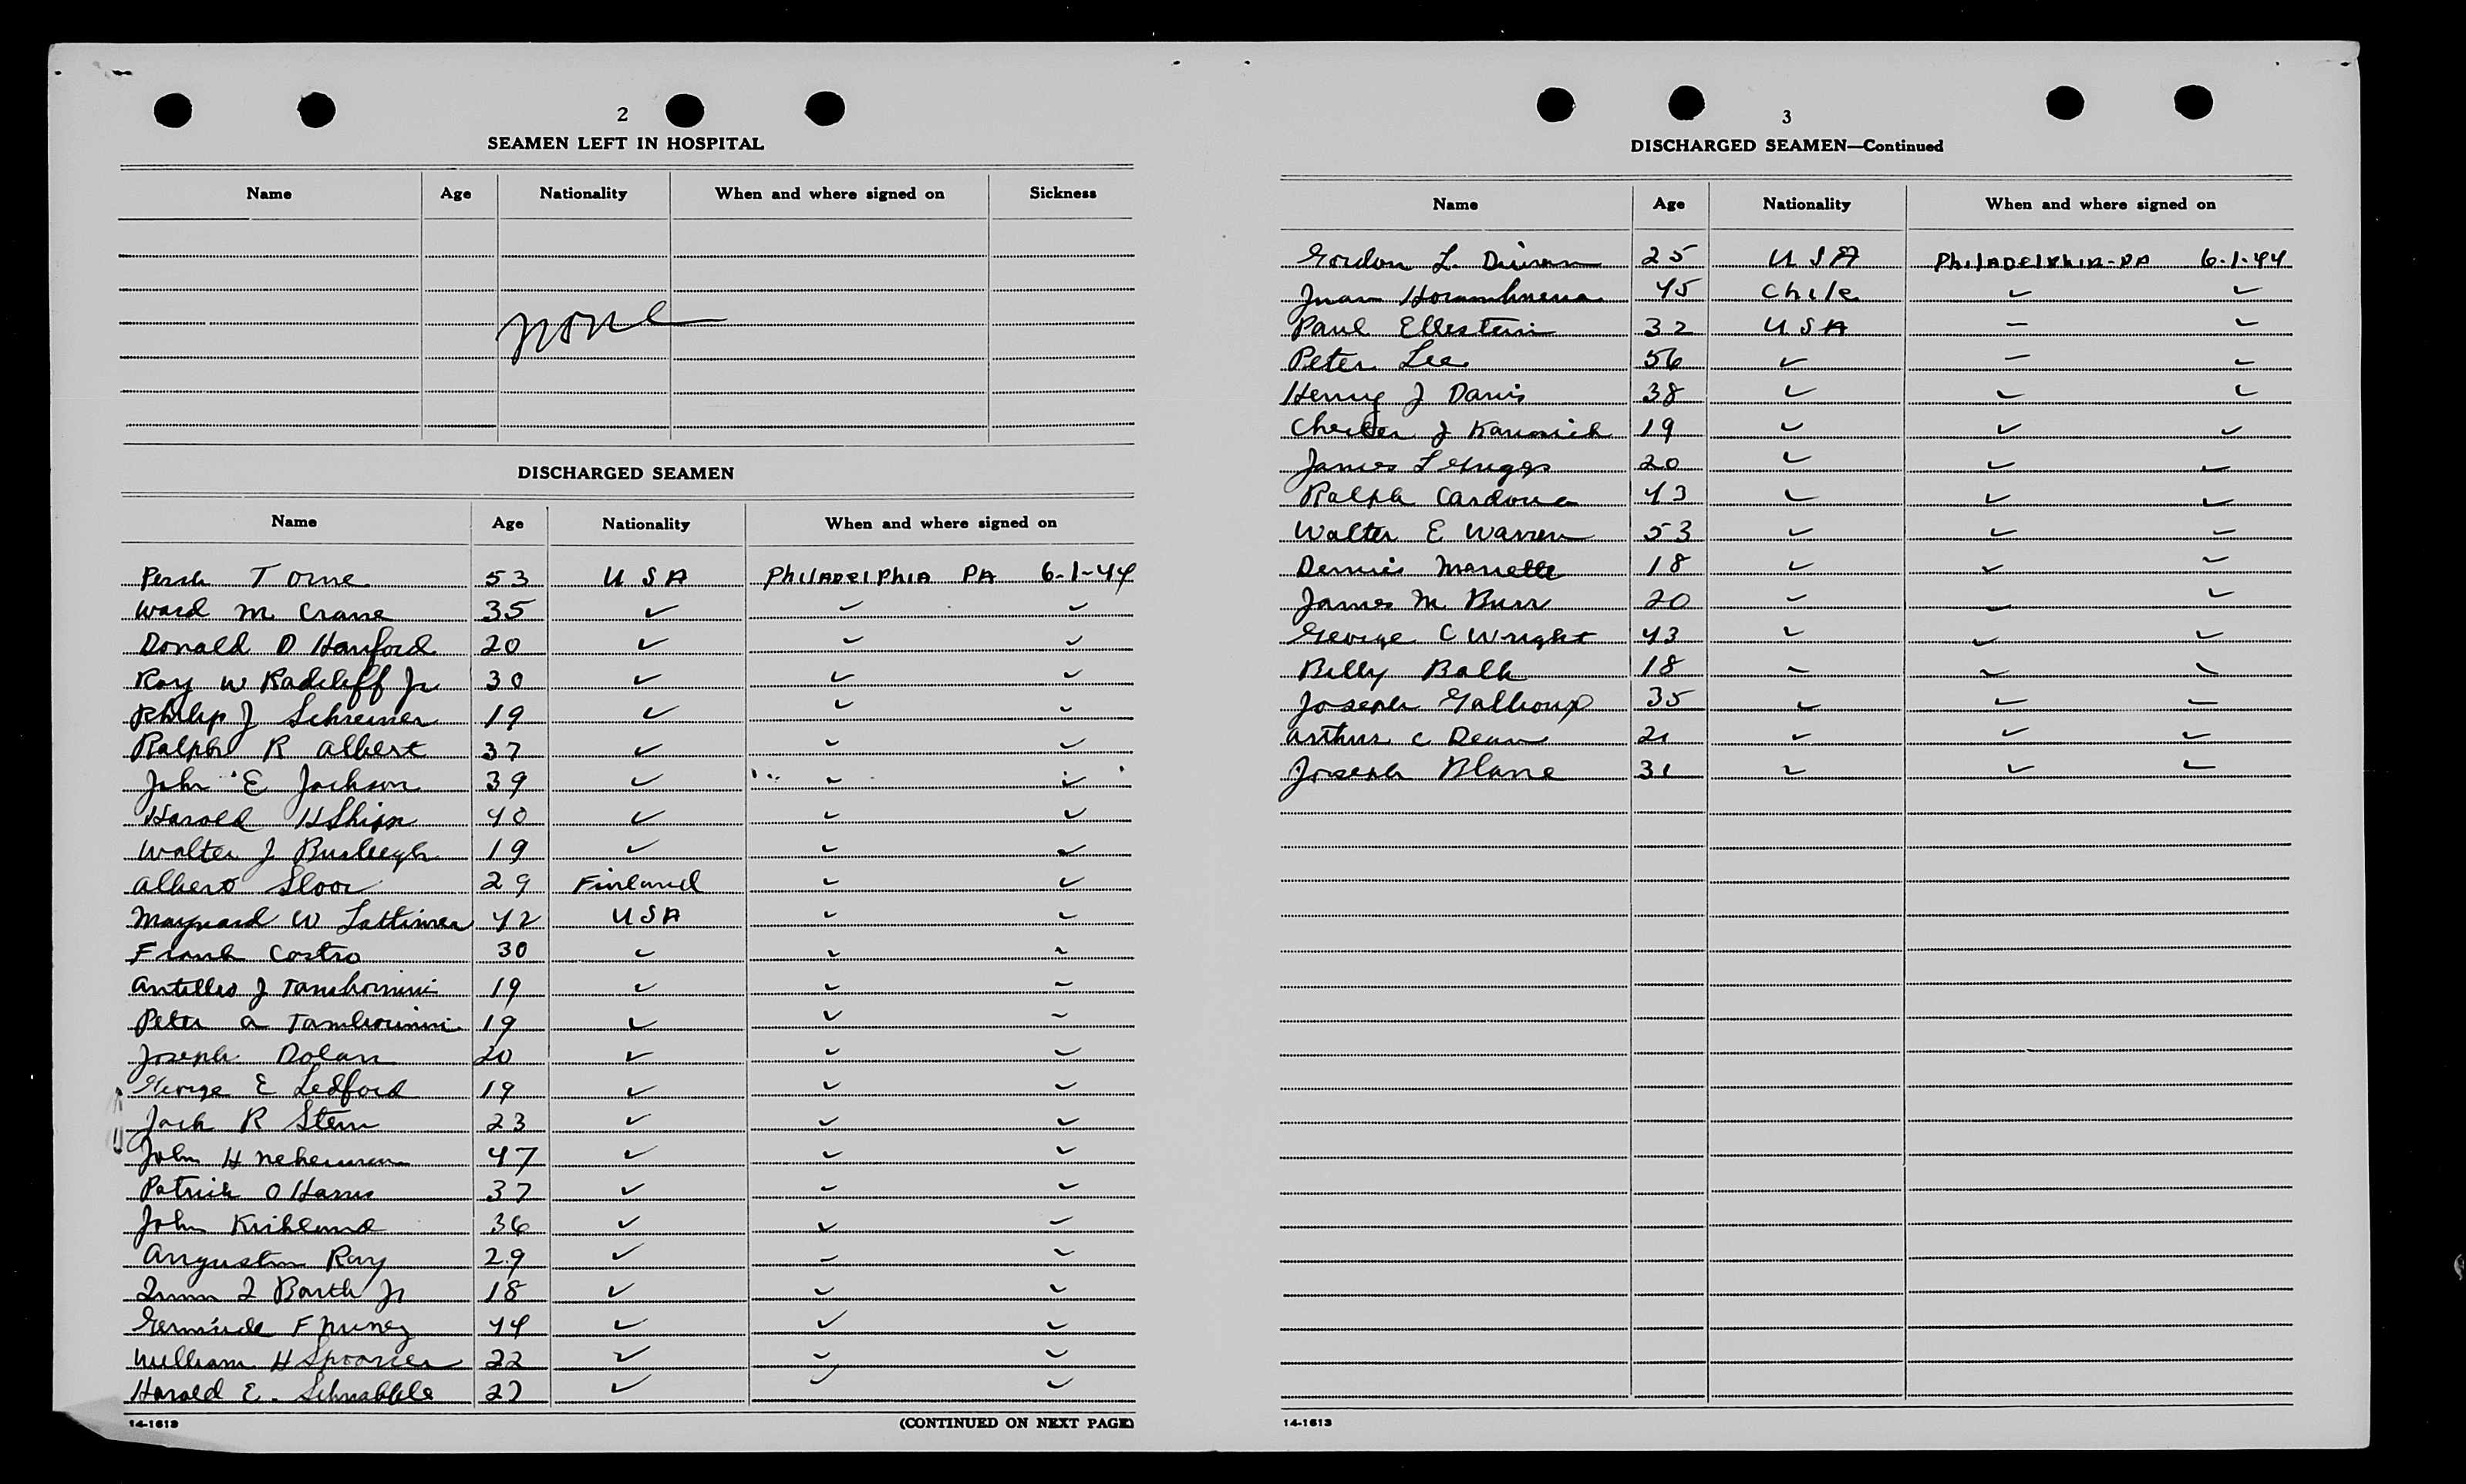 2
SEAMEN LEFT IN HOSPITAL
Name Age Nationality When and where signed on Sickness
none
DISCHARGED SEAMEN
Name Age Nationality When and where signed on
Torne 53 USA PHILADELPHIA PA 6-1-44
Ward M Crane 35 ✓ ✓ ✓
Donald D Hanford 20 ✓ ✓ ✓
Roy W Radcliff Jr 30 ✓ ✓ ✓
Philip J Schreiner 19 ✓ ✓ ✓
Ralph R Albert 37 ✓ ✓ ✓
John E Jackson 39 ✓ ✓ ✓
Harold H Shipp 40 ✓ ✓ ✓
Walter J Burleigh 19 ✓ ✓ ✓
Albert Sloor 29 Finland ✓ ✓
Maynard W Lattimer 42 USA ✓ ✓
Frank Castro 30 ✓ ✓ ✓
J 19 ✓ ✓ ✓
Peter A 19 ✓ ✓ ✓
Joseph Dolan 20 ✓ ✓ ✓
George E Ledford 19 ✓ ✓ ✓
Jack R Stern 23 ✓ ✓ ✓
John H 47 ✓ ✓ ✓
Patrick O 37 ✓ ✓ ✓
John 36 ✓ ✓ ✓
Ray 29 ✓ ✓ ✓
Barth Jr 18 ✓ ✓ ✓
F Nunez 44 ✓ ✓ ✓
William H Spooner 22 ✓ ✓ ✓
Harold E. 27 ✓ ✓ ✓
14-1613 (CONTINUED ON NEXT PAGE)
3
DISCHARGED SEAMEN—Continued
Name Age Nationality When and where signed on
Gordon L. 25 USA PHILADELPHIA-PA 6-1-44
Juan 45 Chile ✓ ✓
Paul Ellestein 32 USA ✓ ✓
Peter Lee 56 ✓ ✓ ✓
Henry J Davis 38 ✓ ✓ ✓
Chester J 19 ✓ ✓ ✓
James L Griggs 20 ✓ ✓ ✓
Ralph Cardona 43 ✓ ✓ ✓
Walter E Warren 53 ✓ ✓ ✓
Dennis 18 ✓ ✓ ✓
James M Burr 20 ✓ ✓ ✓
George C Wright 43 ✓ ✓ ✓
Billy Balk 18 ✓ ✓ ✓
Joseph Galhoup 35 ✓ ✓ ✓
Arthur C Dean 21 ✓ ✓ ✓
Joseph Blane 31 ✓ ✓ ✓
14-1613